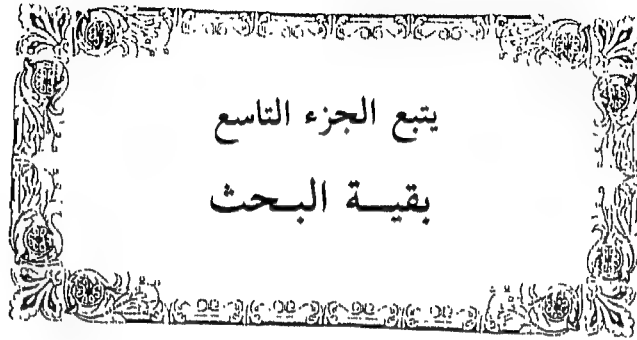 يتبع الجزء التاسع
بقيـــة البــحث